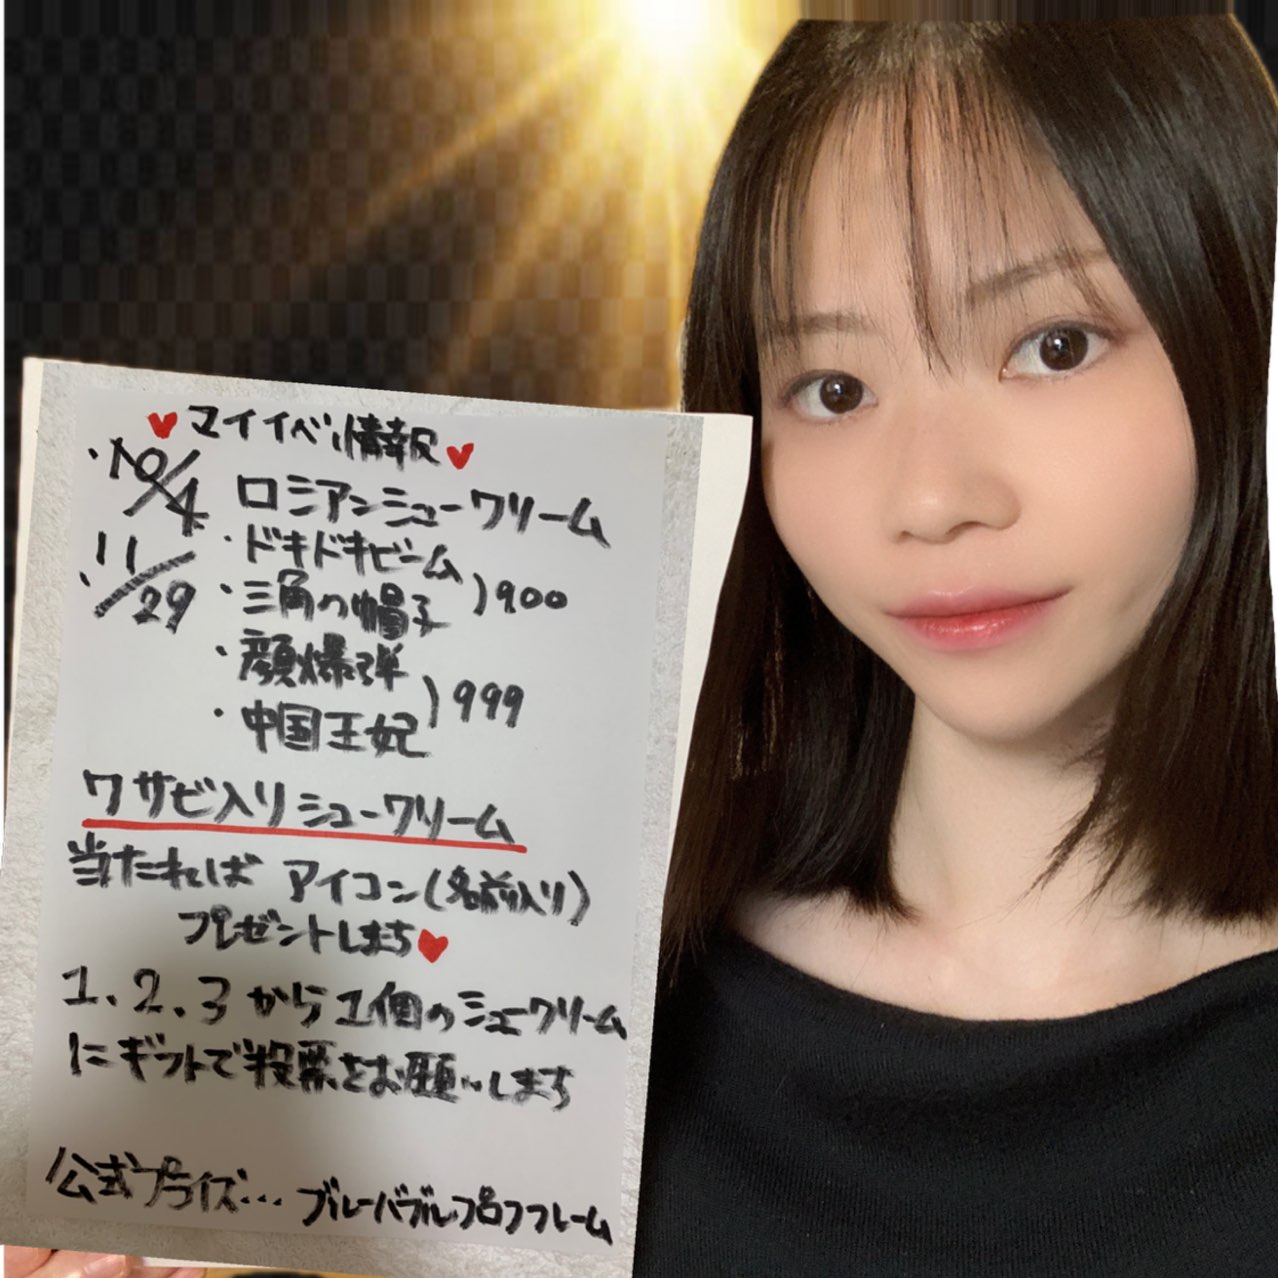 ♥マイイベ情報♥
・10/4 ロシアンシュークリーム
・11/29 ・ドキドキビーム
・三角の帽子 )900
・顔爆弾
・中国王妃 )999
ワサビ入りシュークリーム
当たれば アイコン(名前入り)
プレゼントします♥
1.2.3から1個のシュークリーム
にギフトで投票をお願いします
公式プライズ...ブルーバブルプロフフレーム